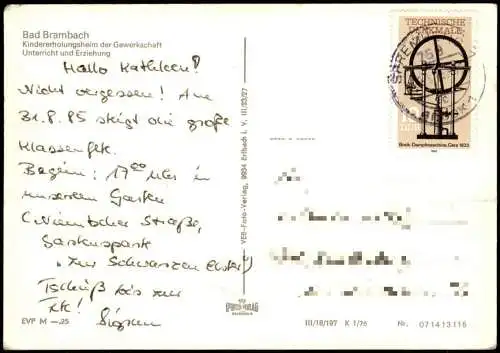 Bad Brambach
Kindererholungsheim der Gewerkschaft
Unterricht und Erziehung
Hallo Kathleen!
Nicht vergessen! Am
31.8.85 steigt die große
Klassenfete.
Beginn: 17⁰⁰ Uhr in
unserem Garten
Straße,
Gartensparte
"Zur Schwarzen Elster")
Tschüß bis zur
Fete!
EVP M —,25
VEB Foto-Verlag, 9934 Erlbach i. V. III/23/27
TECHNISCHE
DENKMALE
10
DDR
Bock-Dampfmaschine, Gera 1833
III/18/197 K 1/76
Nr. 071413116